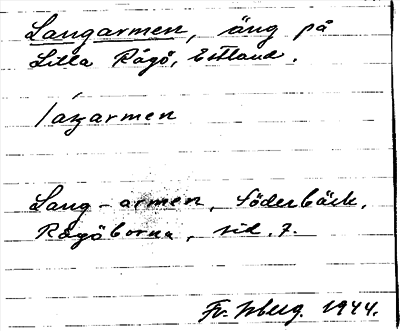 Langarmen, äng på
Lilla Rågö, Estland.
Lang-armen, Söderbäck,
Rågöborna, sid. 7.
1944.